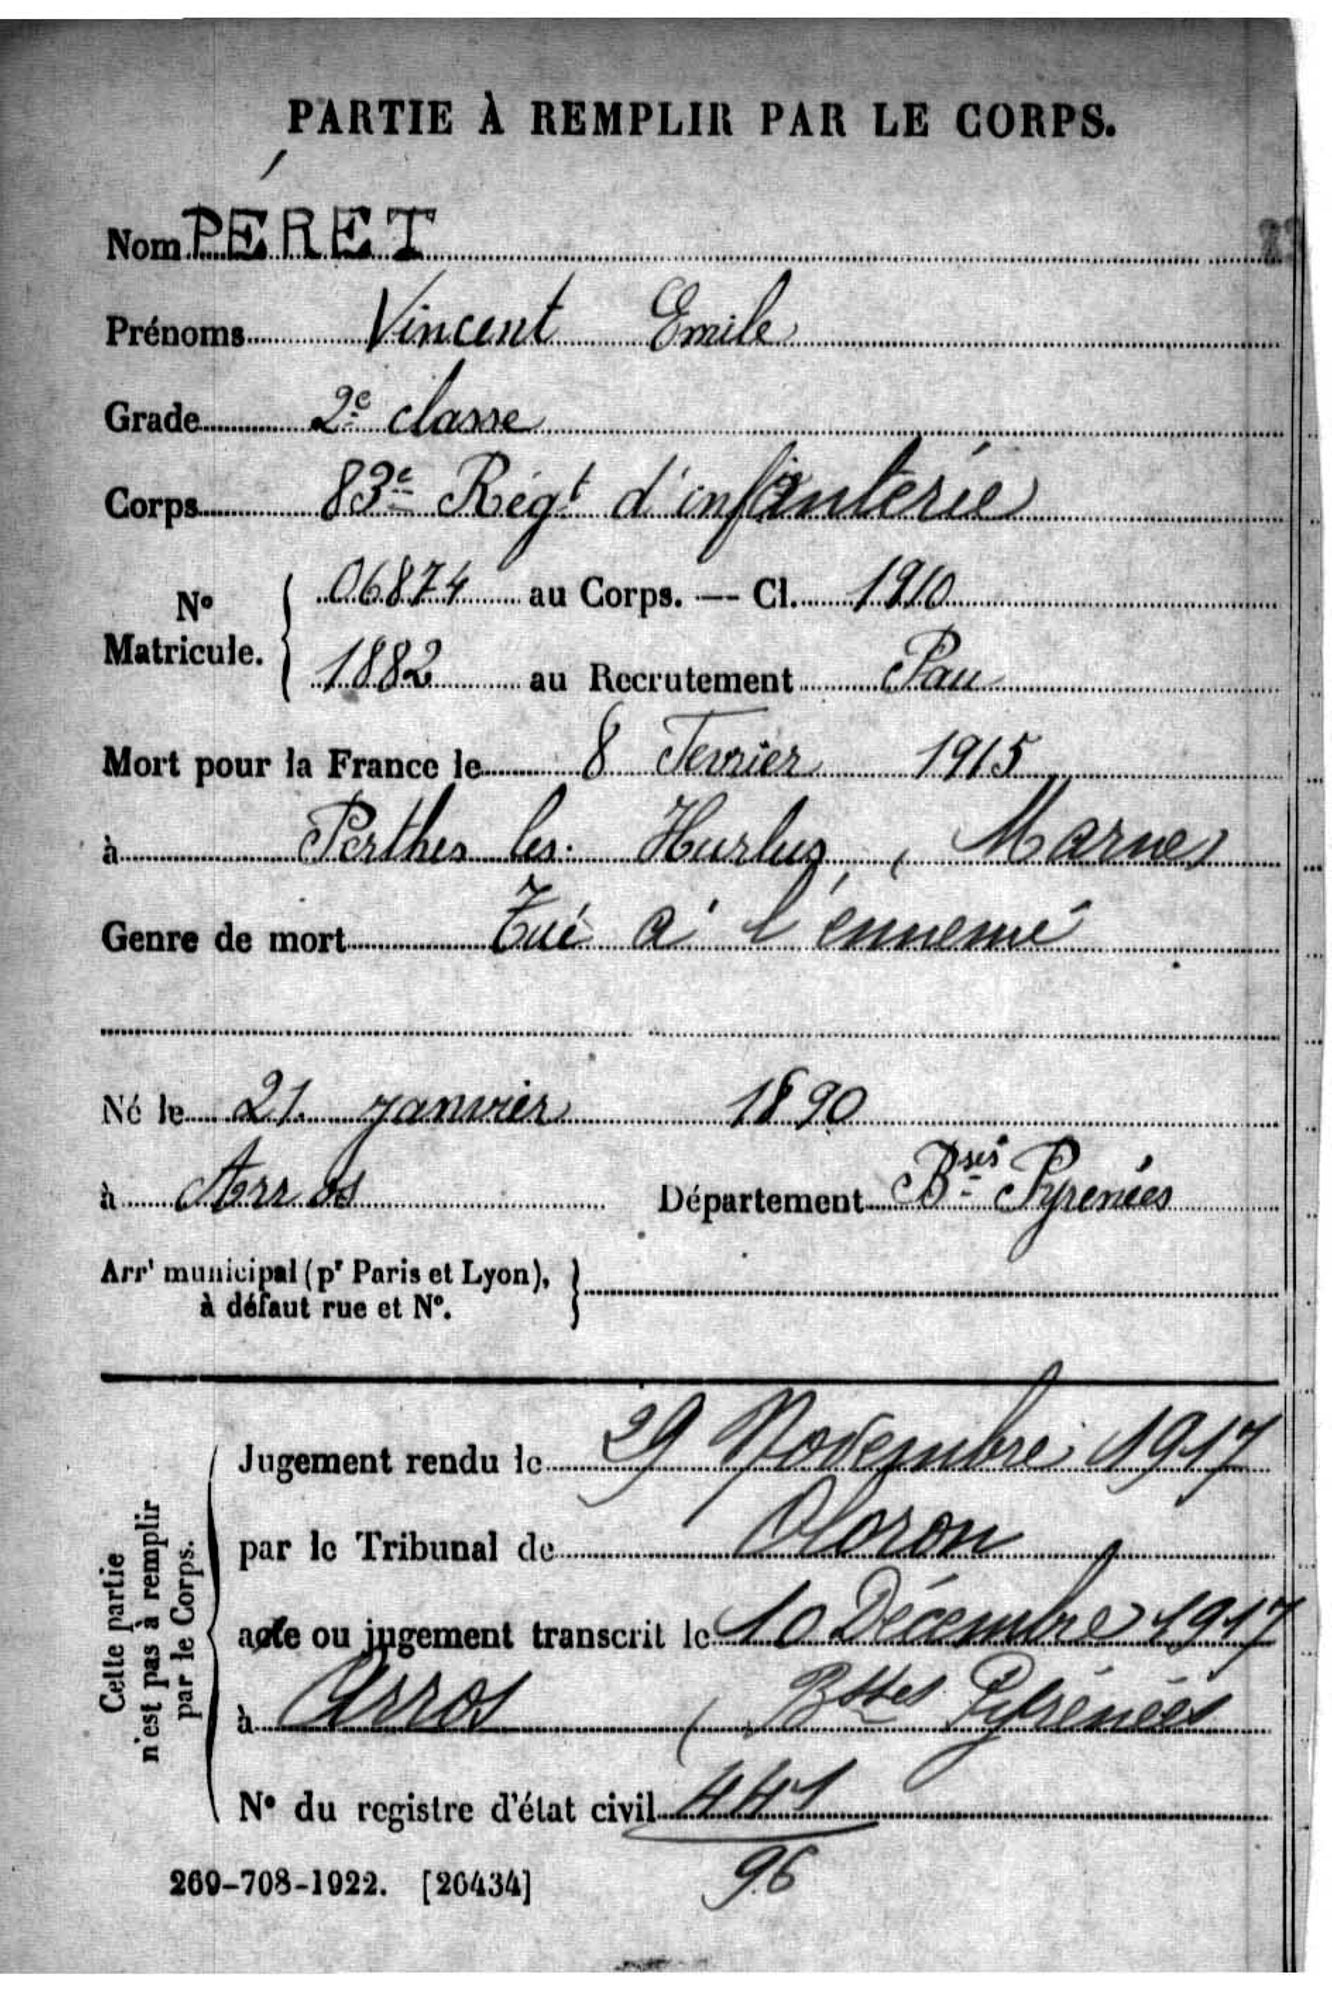 PARTIE À REMPLIR PAR LE CORPS.
Nom PÉRET
Prénoms Vincent Emile
Grade 2e classe
Corps 83e Régt d'infanterie
No Matricule. 06874 au Corps. — Cl. 1910
1882 au Recrutement Pau
Mort pour la France le 8 Fevrier 1915
à Perthes les Hurlus, (Marne)
Genre de mort Tué à l'ennemi
Né le 21 janvier 1890
à Arros Département Bses Pyrenées
Arrt municipal (pr Paris et Lyon),
à défaut rue et No.
Cette partie
n'est pas à remplir
par le Corps.
Jugement rendu le 29 Novembre 1917
par le Tribunal de Oloron
acte ou jugement transcrit le 10 Décembre 1917
à Arros (Bsses Pyrénées
No du registre d'état civil 441
96
269-708-1922. [26434]